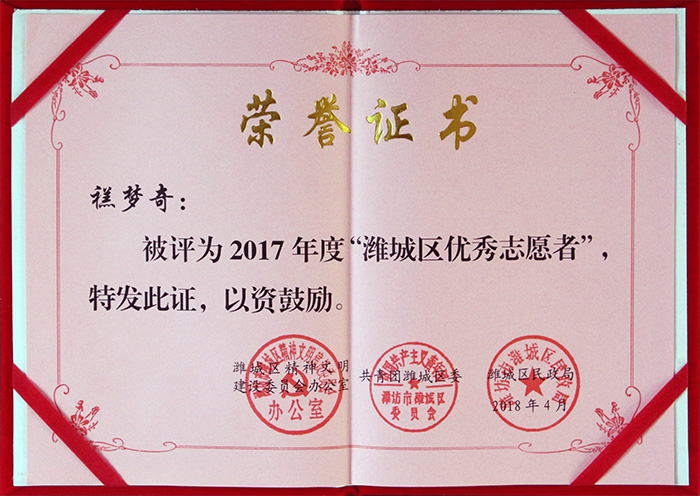 荣誉证书
禚梦奇：
被评为 2017 年度“潍城区优秀志愿者”，
特发此证，以资鼓励。
潍城区精神文明
建设委员会办公室
共青团潍城区委
潍城区民政局
2018 年 4 月
办公室
潍坊市潍城区
委员会